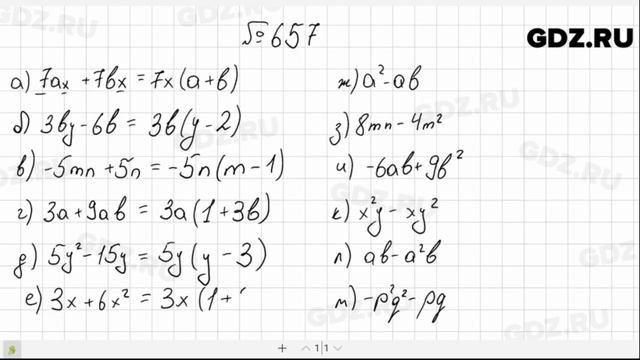 №657
GDZ.RU
а) 7ax + 7bx = 7x(a+b)
б) 3by - 6b = 3b(y-2)
в) -5mn + 5n = -5n(m-1)
г) 3a + 9ab = 3a(1+3b)
д) 5y² - 15y = 5y(y-3)
е) 3x + 6x² = 3x(1+
ж) a² - ab
з) 8mn - 4m²
и) -6ab + 9b²
к) x²y - xy²
л) ab - a²b
м) -p²q² - pq
1|1